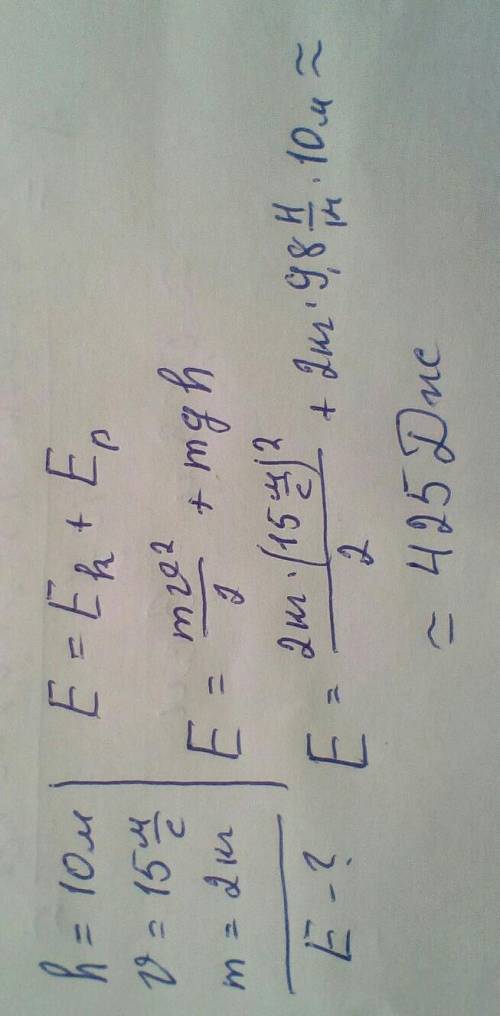 h = 10м
v = 15 м/с
m = 2кг
E - ?
E = Ek + Ep
E = mv²/2 + mgh
E = 2кг · (15 м/с)²/2 + 2кг · 9,8 Н/кг · 10м ≈
≈ 425 Дж